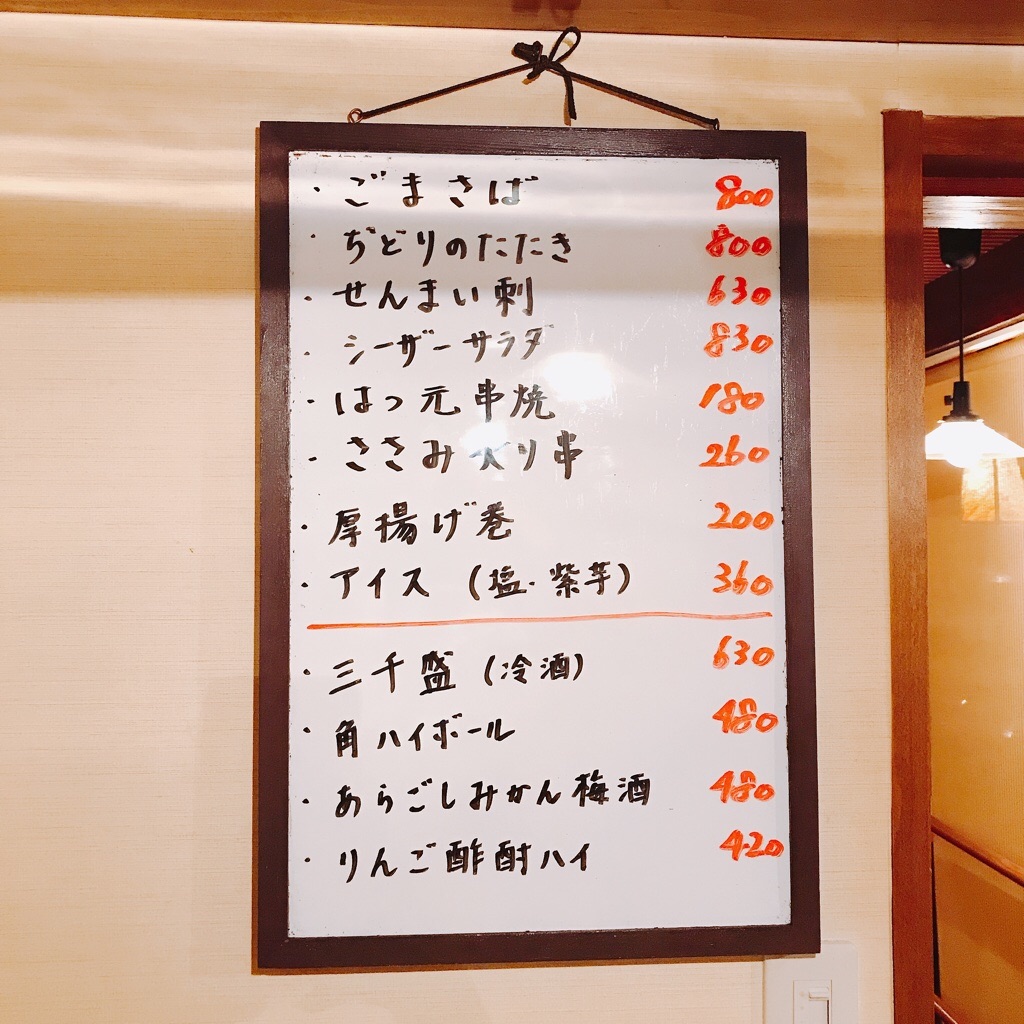 ・ごまさば 800
・ぢどりのたたき 800
・せんまい刺 630
・シーザーサラダ 830
・はつ元串焼 180
・ささみ 串 260
・厚揚げ巻 200
・アイス (塩・紫芋) 360
・三千盛 (冷酒) 630
・角ハイボール 480
・あらごしみかん梅酒 480
・りんご酢酎ハイ 420